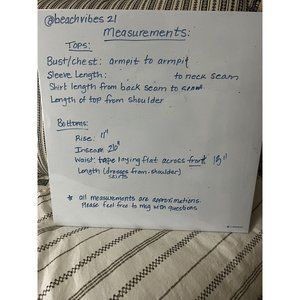 @beachvibes21
Measurements:
Tops:
Bust/chest: armpit to armpit
Sleeve Length: to neck seam
Shirt length from back seam to
Length of top from shoulder
Bottoms:
Rise: 11"
Inseam 26"
Waist: tape laying flat across front 15"
Length (dresses from shoulder)
skirts
* all measurements are approximations.
Please feel free to msg with questions